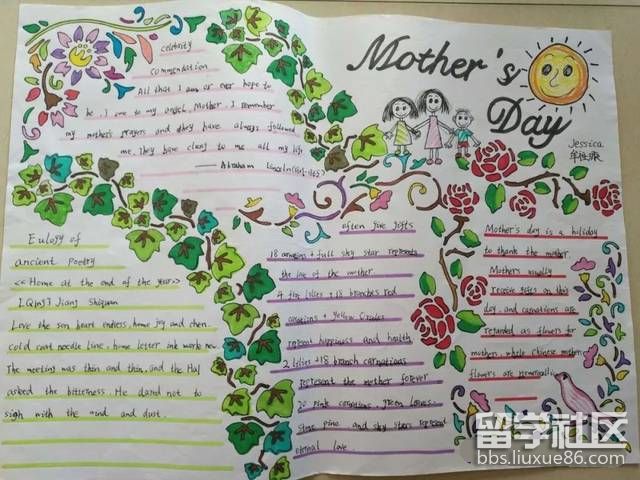 Mother's
Day
Jessica
celebrity
commendation
All that I am or ever hope to
be, I owe to my angel Mother. I remember
my mother's prayers and they have always followed
me. They have clung to me all my life
—— Abraham Lincoln
Eulogy of
ancient Poetry
<<Home at the end of the year>>
[Qing] Jiang Shiquan
Love the son heart endness, home joy and chen.
cold coat needle line, home letter ink work new
The meeting was thin and thin, and the Hal
asked the bitterness. He dared not to
sigh with the wind and dust.
often give gifts
18 carnation + full sky star represents
the love of the mother
lilies + 18 branches red
carnation + yellow
repeat happiness and health
2 lilies +18 branch carnations
represent the mother forever
20 pink carnations green leaves
pine and sky stars represent
eternal love.
Mother's day is a holiday
to thank the mother.
Mothers usually
receive gifts on this
day, and carnations are
retarded as flowers for
mothers, while Chinese mother
flowers are
留学社区
bbs.liuxue86.com